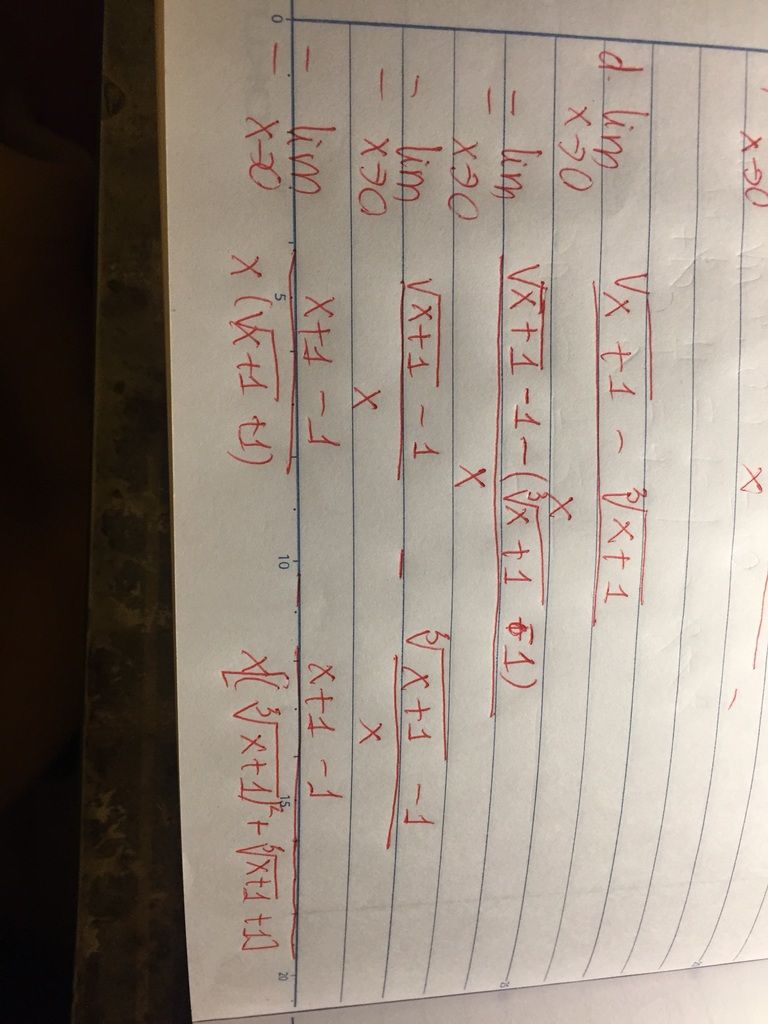 x→0 x
d. lim x→0 (√(x+1) - ∛(x+1)) / x
= lim x→0 (√(x+1) - 1 - (∛(x+1) - 1)) / x
= lim x→0 (√(x+1) - 1) / x - (∛(x+1) - 1) / x
= lim x→0 (x+1-1) / (x(√(x+1) +1)) (x+1-1) / (x[(∛(x+1))² + ∛(x+1) +1])
0 5 10 15 20